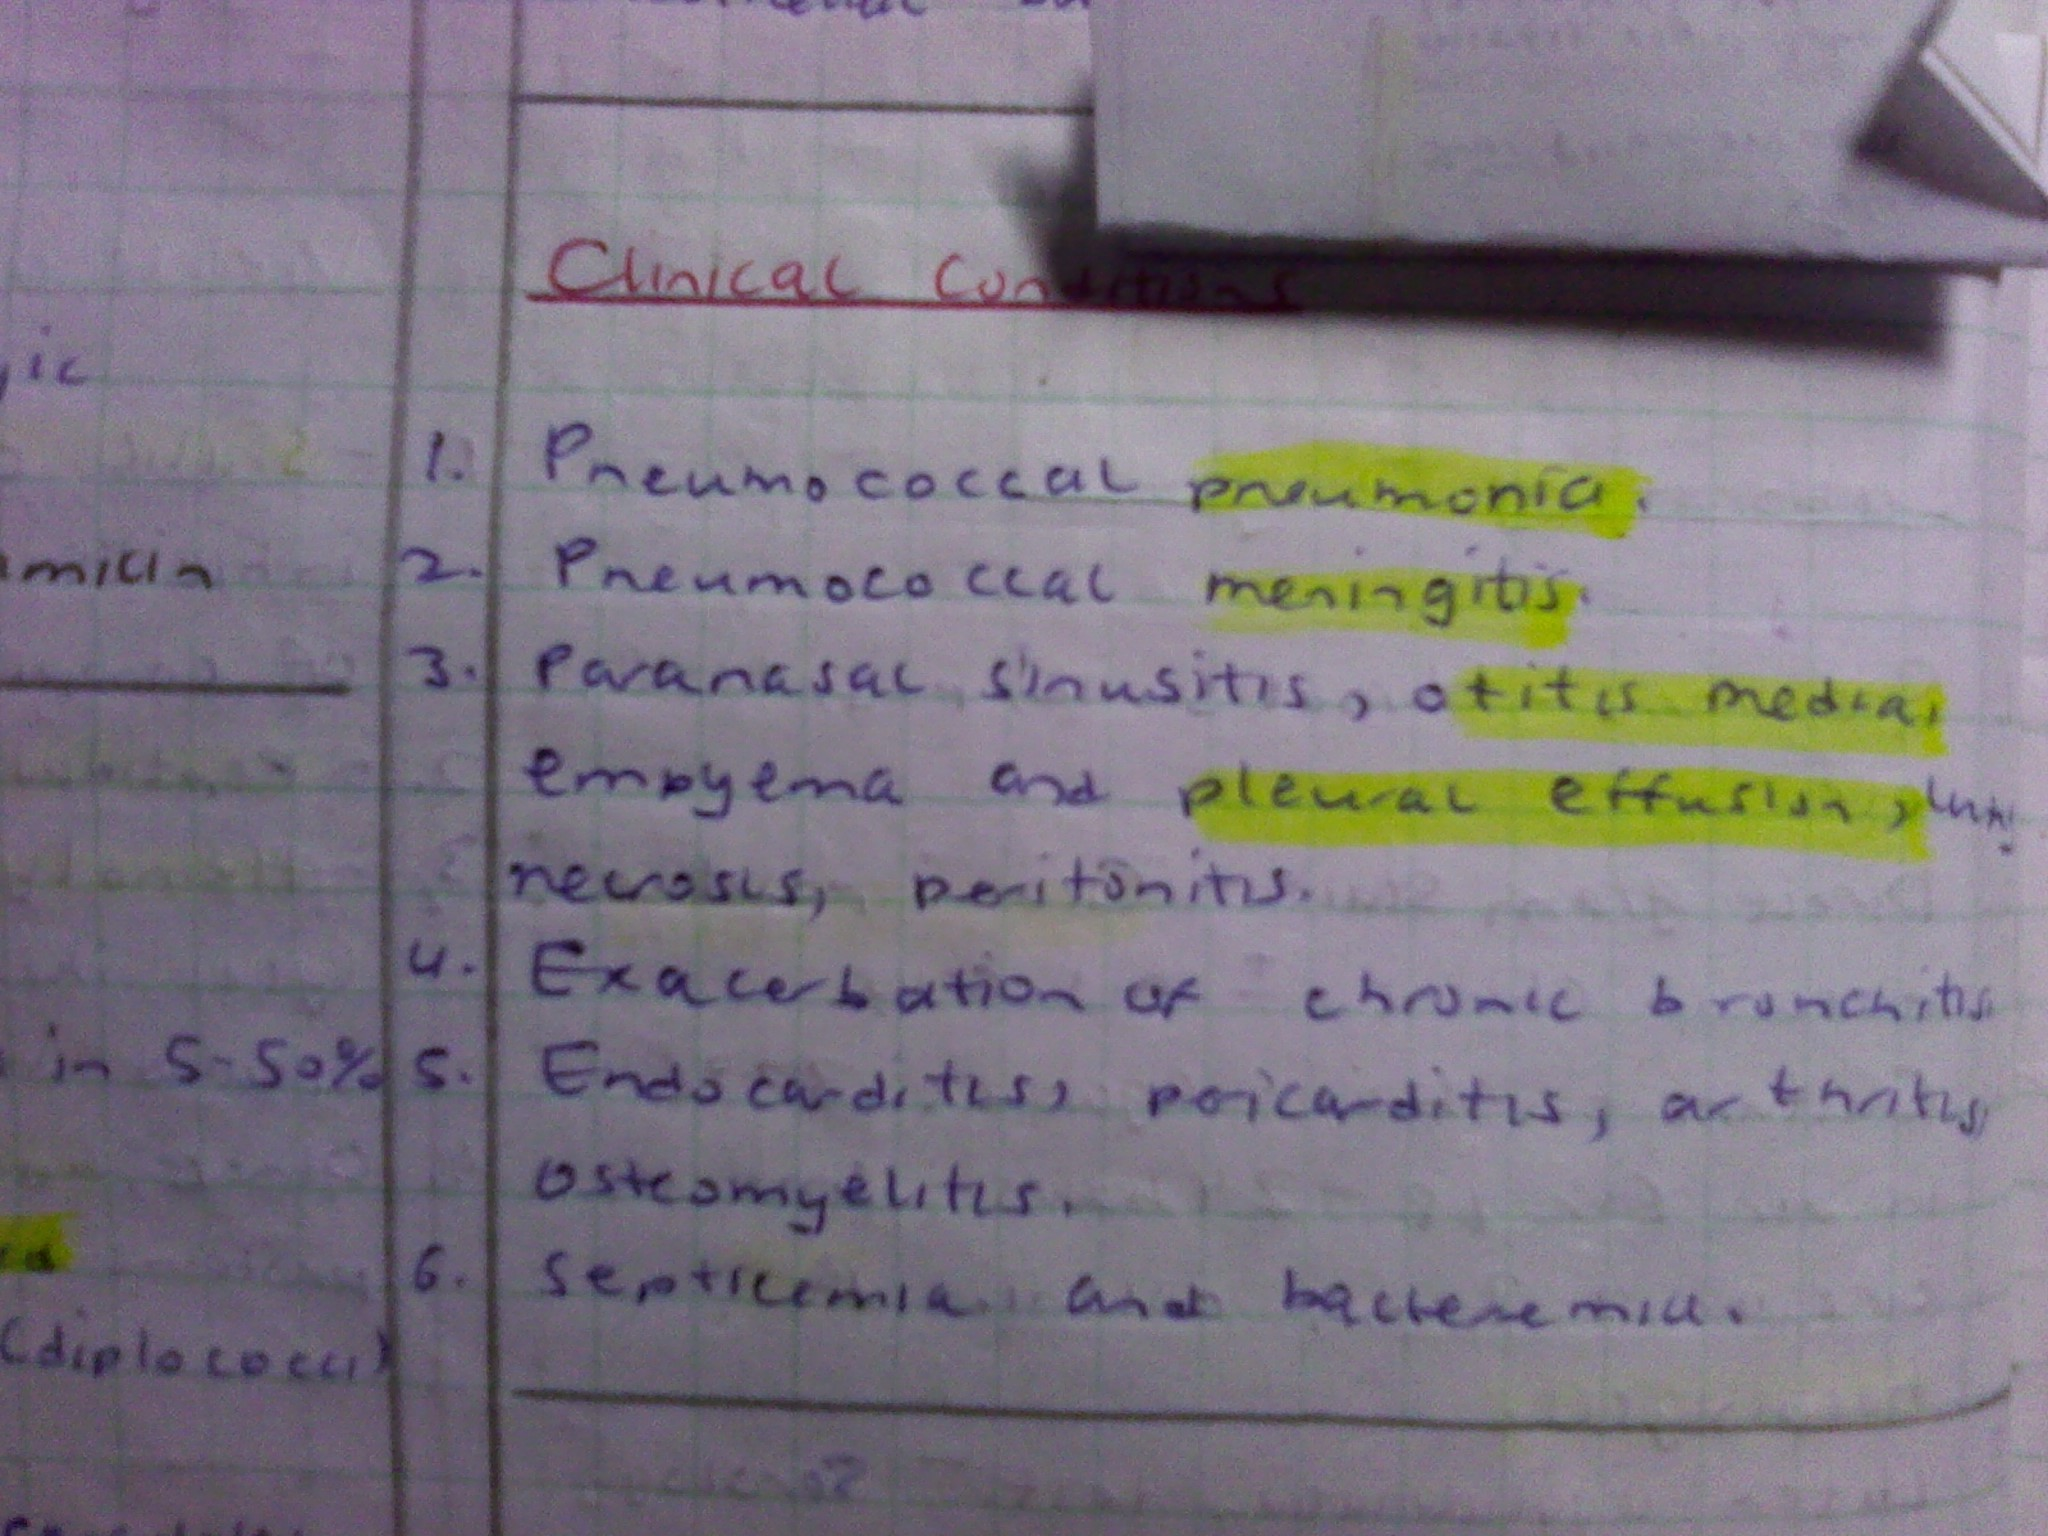 Clinical Conditions
1. Pneumococcal pneumonia.
2. Pneumococcal meningitis.
3. Paranasal sinusitis, otitis media,
empyema and pleural effusion, lung
necrosis, peritonitis.
4. Exacerbation of chronic bronchitis
in 5-50%
5. Endocarditis, pericarditis, arthritis,
osteomyelitis.
6. Septicemia and bacteremia.
(diplococci)